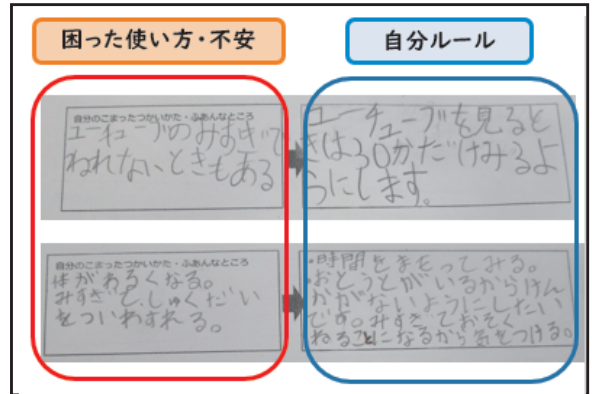 困った使い方・不安
自分ルール
自分のこまったつかいかた・ふあんなところ
ユーチューブのみすぎで
ねれないときもある
ユーチューブを見ると
きは30かだけみるよ
うにします。
自分のこまったつかいかた・ふあんなところ
体がわるくなる。
みすぎて、しゅくだい
をついわすれる。
・時間をまもってみる。
・おとうとがいるからけん
かがないようにしたい
です。みすぎておそく
ねることになるから気をつける。